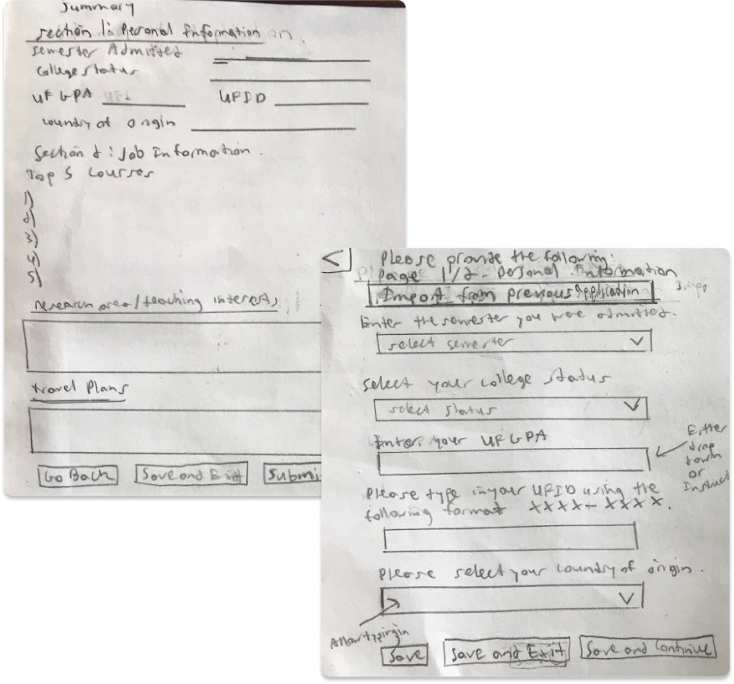 Summary
Section 1: Personal Information on.
Semester Admitted
College Status
UF GPA UFID
Country of origin
Section 2: Job Information.
Top 5 Courses
1)
2)
3)
4)
5)
research area/teaching interests
travel Plans
Go Back Save and Exit Submi
<
Please provide the following:
Page 1/2 - Personal Information
Import from previous Application
Enter the semester you were admitted.
select semester
select your college status
select status
Enter your UF GPA
Either
drop
down
or
Instruct
Please type in your UFID using the
following format XXXX-XXXX.
Please select your country of origin.
Allow typing in
Save Save and Exit Save and Continue